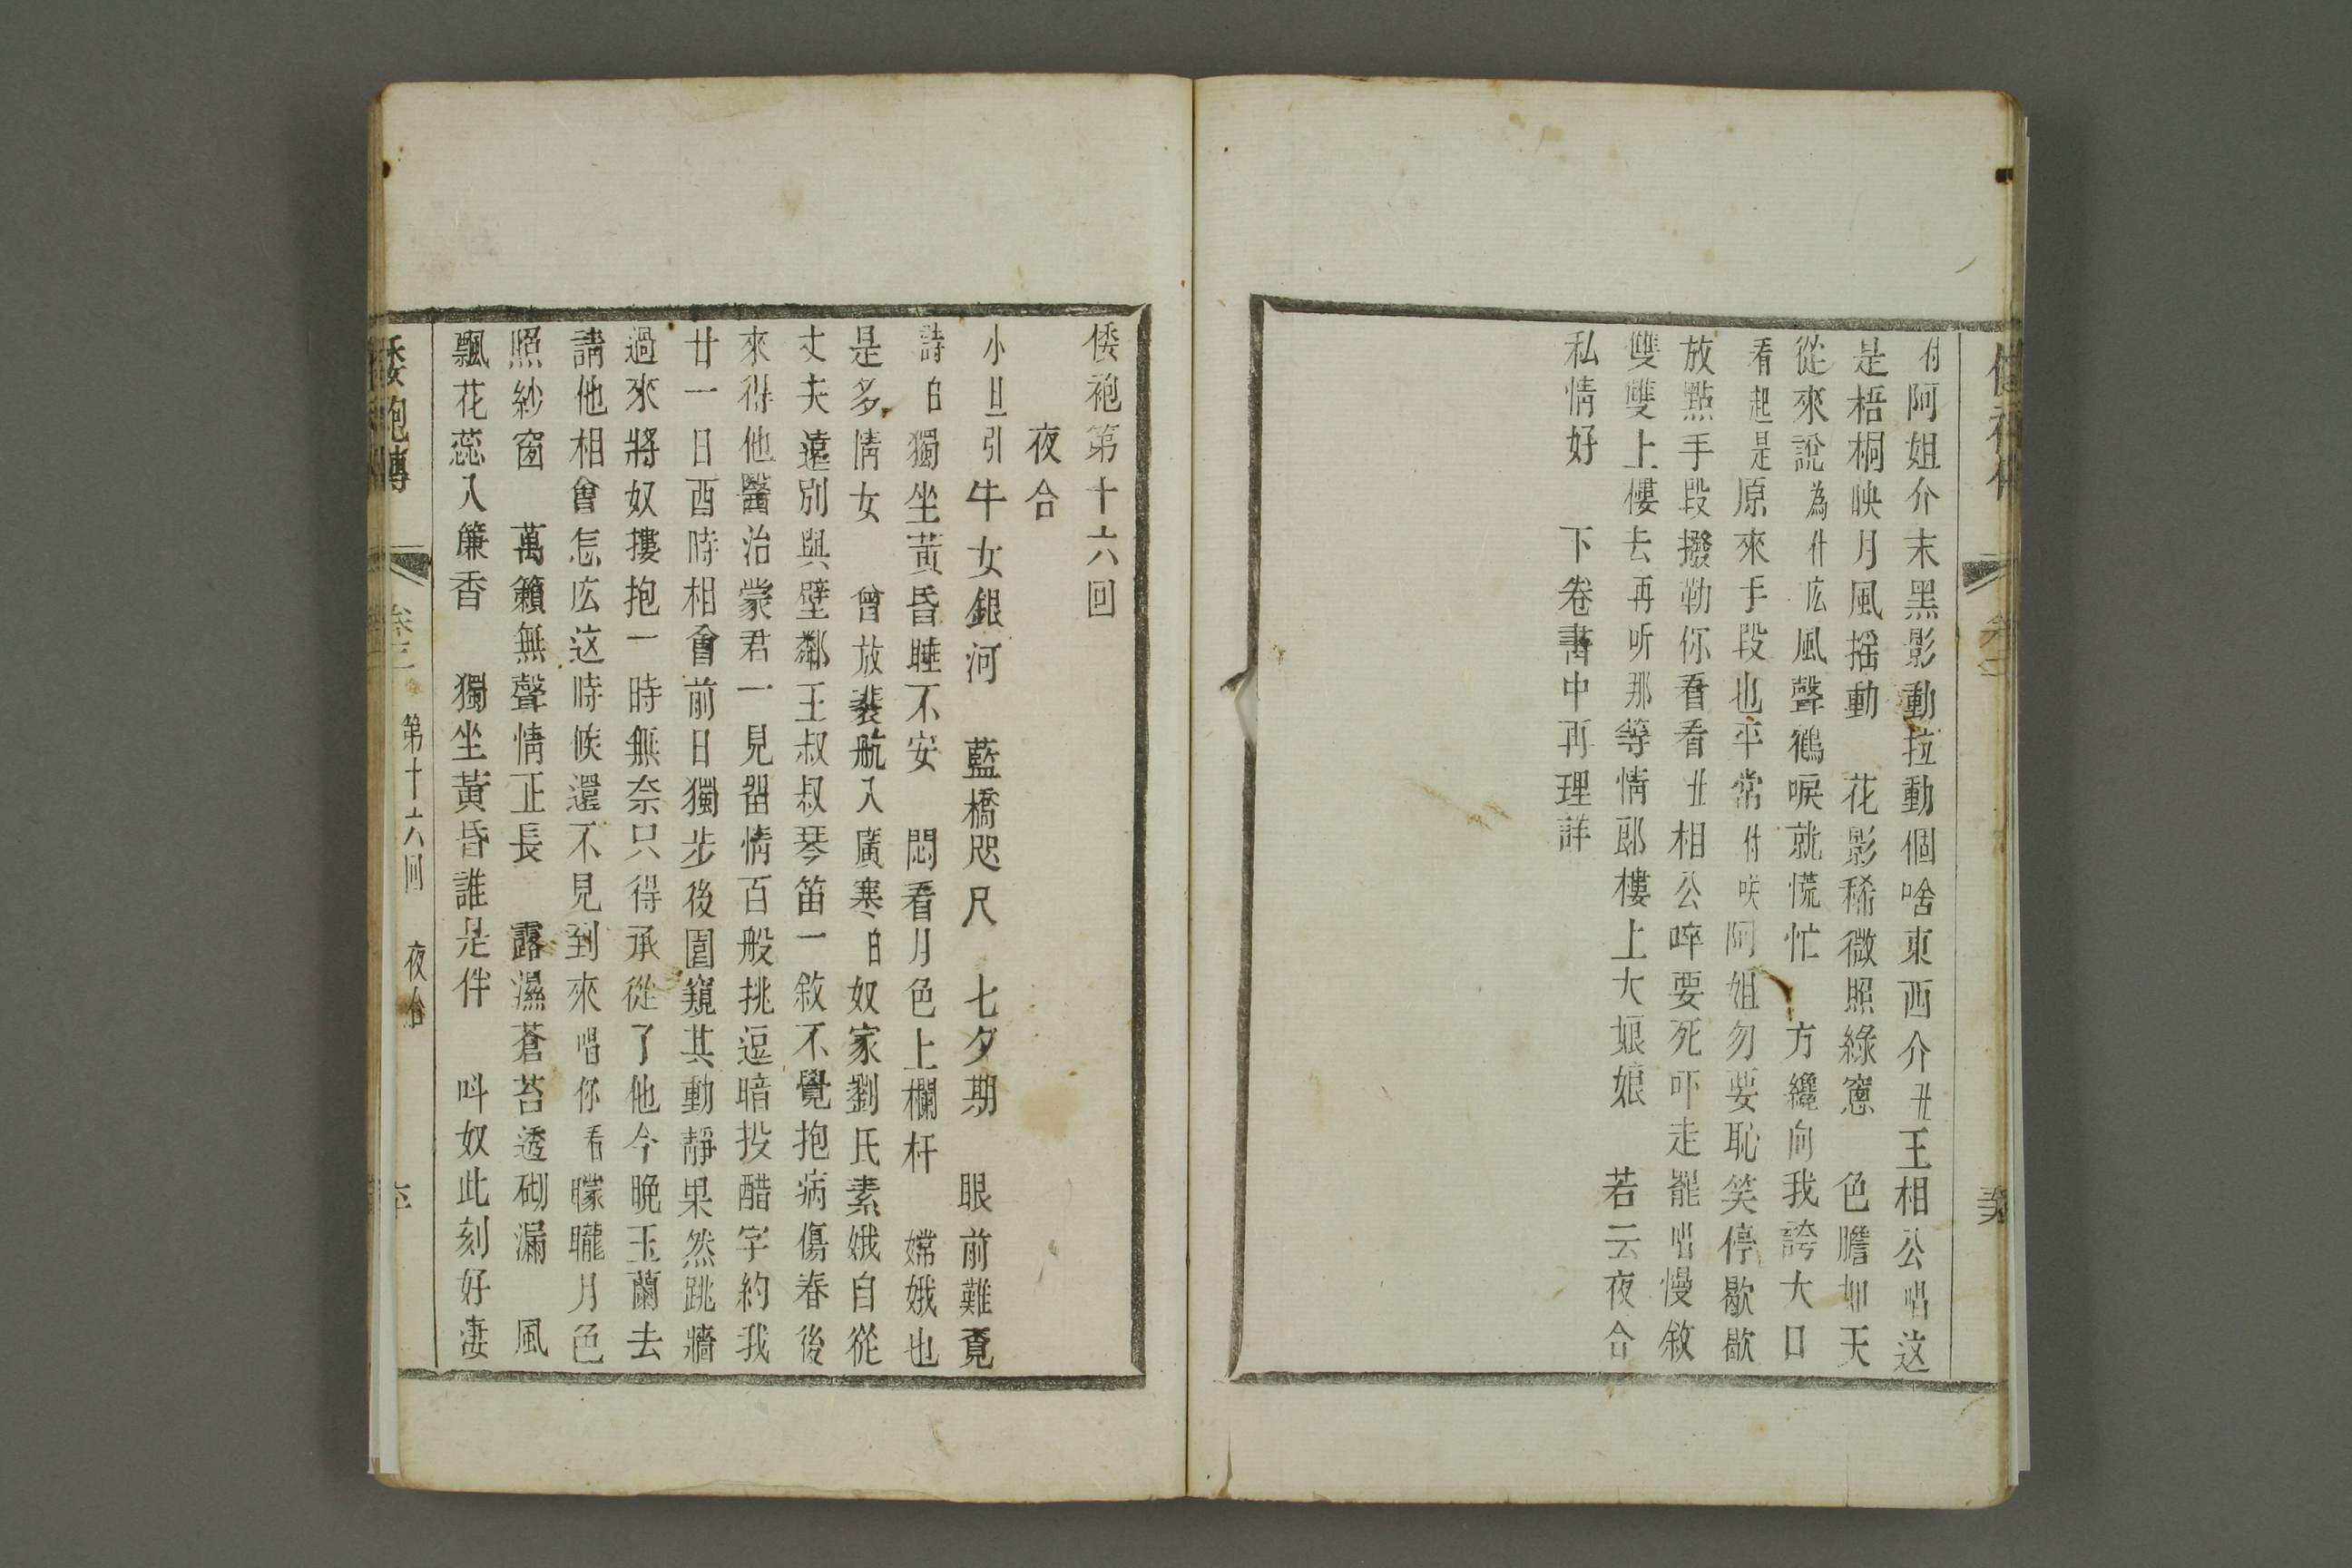 付阿姐介末黑影動拉動個啥東西介丑王相公唱这
是梧桐映月風摇動　花影稀微照綠窻　色膽如天
從來說為什庅風聲鶴唳就慌忙　方纔向我誇大口
看起是原來手段也平常付咲阿姐勿要恥笑停歇歇
放點手段撥勒你看看丑相公啐要死吓走罷唱慢敘
雙雙上樓去再听那等情郎樓上大娘娘　若云夜合
私情好　下卷書中再理詳
倭袍第十六回
夜合
小旦引牛女銀河　藍橋咫尺　七夕期　眼前難覔
詩白獨坐黃昏睡不安　悶看月色上欄杆　嫦娥也
是多情女　曾放裴航入廣寒白奴家劉氏素娥自從
丈夫遠別與壁鄰王叔叔琴笛一敘不覺抱病傷春後
來得他醫治蒙君一見留情百般挑逗暗投醋字約我
廿一日酉時相會前日獨步後園窺其動靜果然跳牆
過來將奴摟抱一時無奈只得承從了他今晚玉蘭去
請他相會怎庅这時候還不見到來唱你看矇矓月色
照紗窗　萬籟無聲情正長　露濕蒼苔透砌漏　風
飄花蕊入簾香　獨坐黃昏誰是伴　呌奴此刻好凄
倭袍傳　卷三　第十六回　夜合